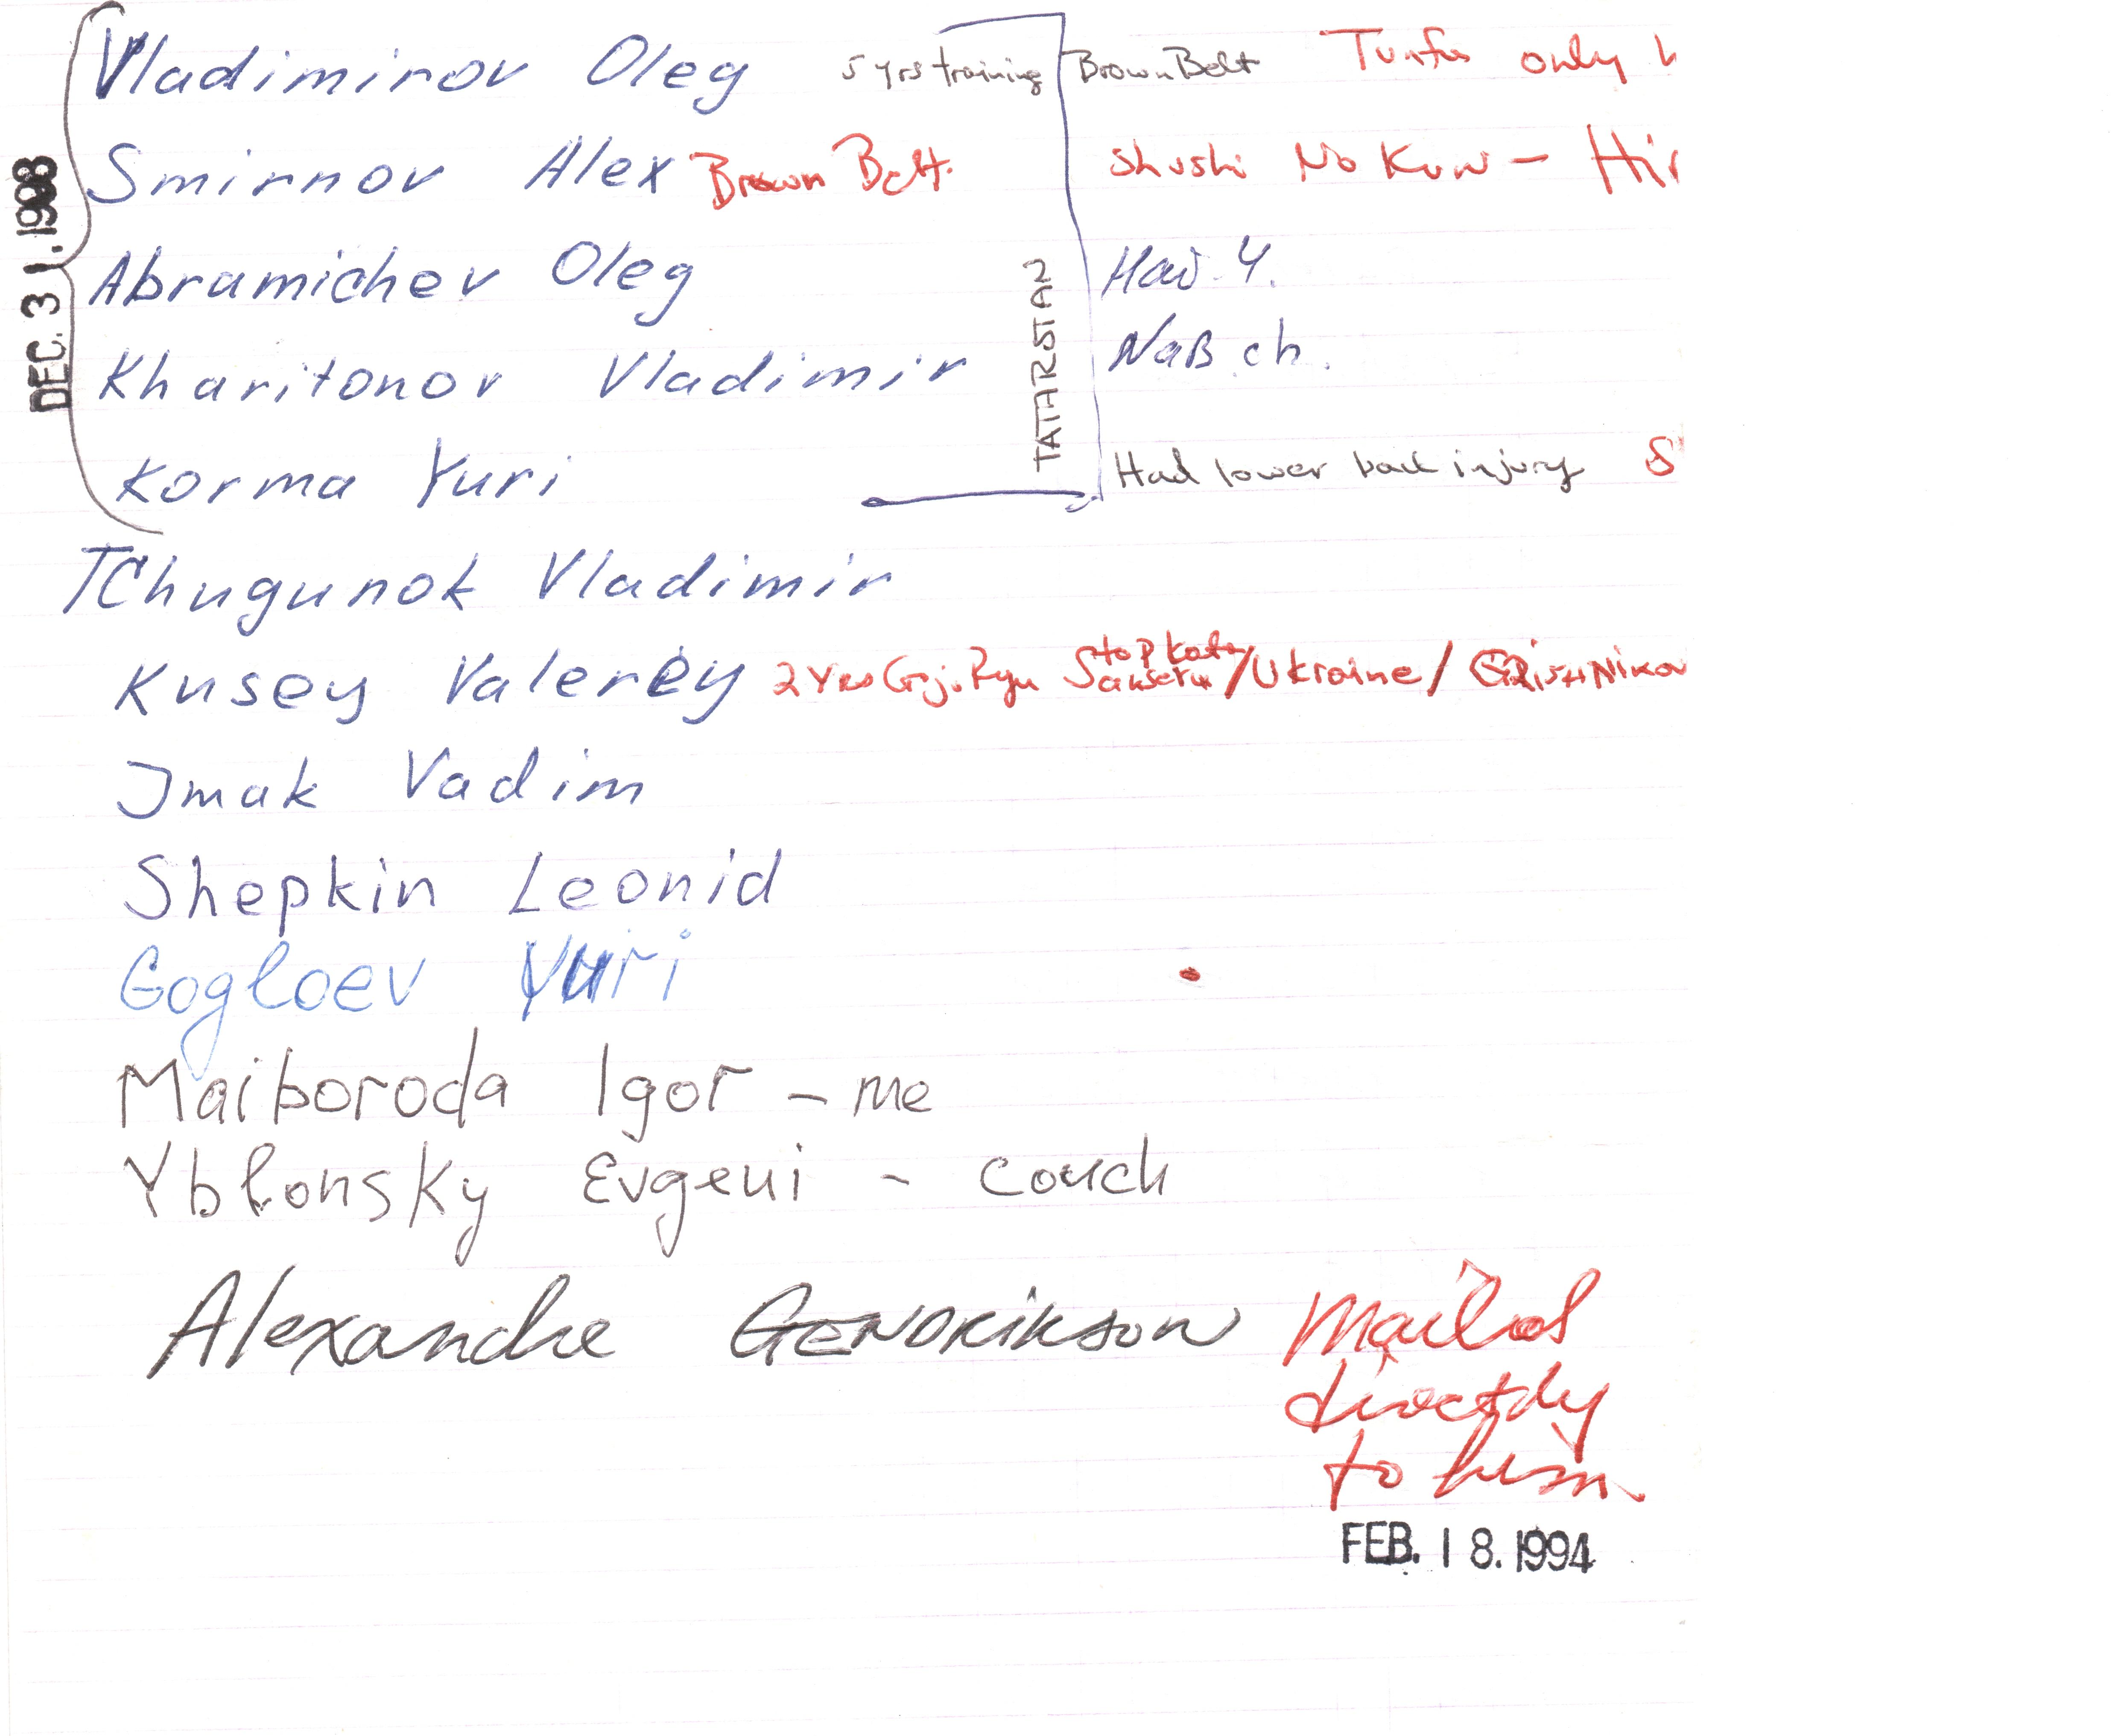 Vladimirov Oleg 5 yrs training Brown Belt only
Smirnov Alex Brown Belt. Shushi No Kun -
Abramichev Oleg
Kharitonov Vladimir
Korma Yuri Had lower back injury
TATARSTAN
DEC. 31. 1993
TChugunok Vladimir
Kusey Valerey 2 Yrs Goju Ryu top kata /Ukraine/
Imak Vadim
Shepkin Leonid
Gogloev Yuri
Maiboroda Igor - me
Yblonsky Evgeni - couch
Alexandre GENDRIKSON Mailed
directly
to him
FEB. 18. 1994